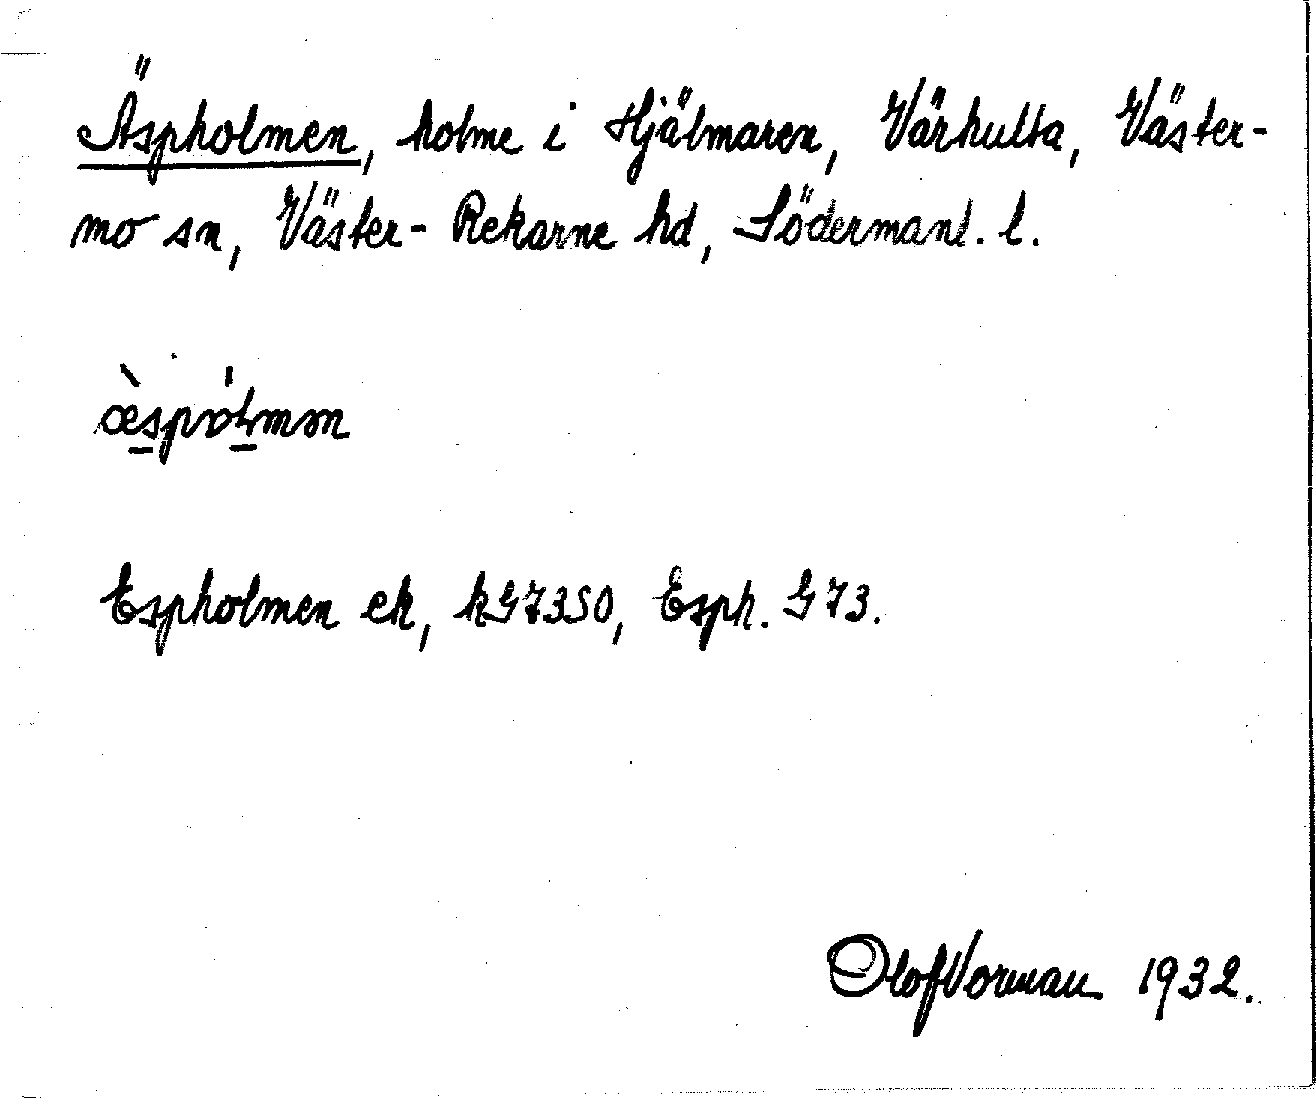 Äspholmen, holme i Hjälmaren, Vårhulta, Väster-
mo sn, Väster-Rekarne hd, Södermanl. l.
Espholmen ek, kG7350, Esph. G73.
Olof Vorman 1932.